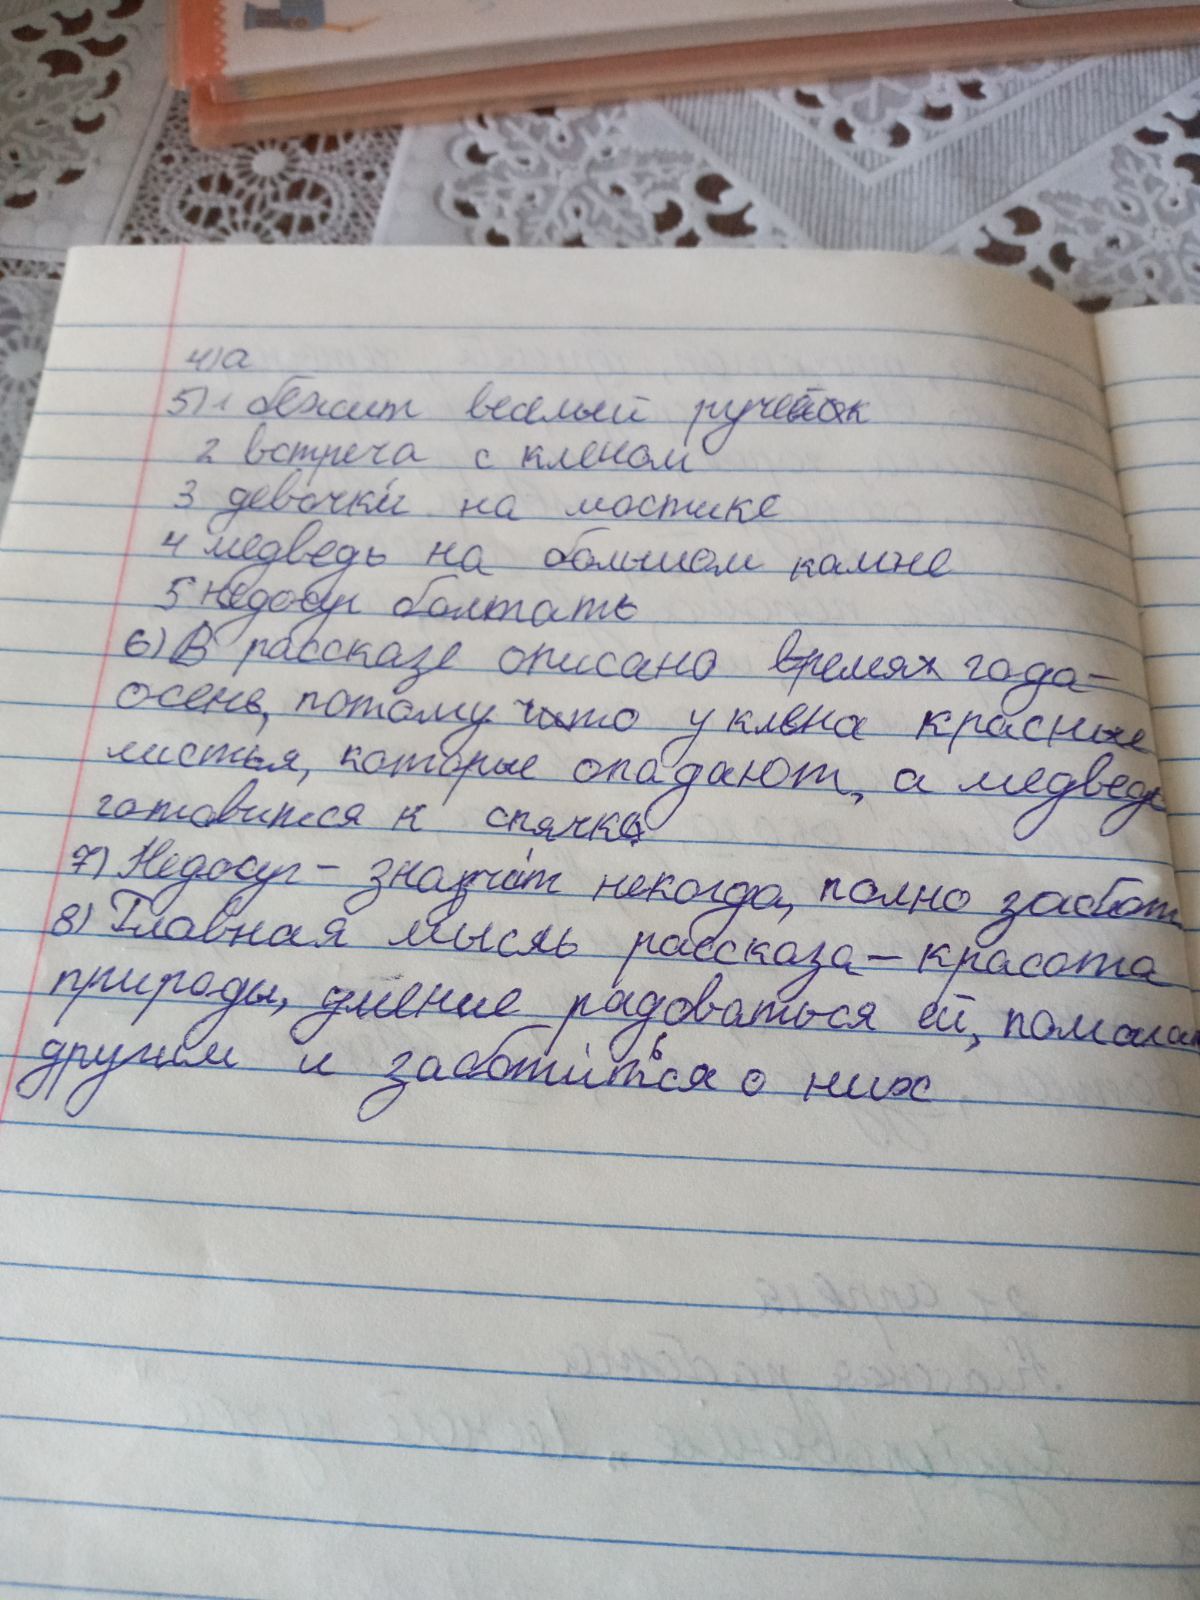 4) а
5) 1 бежит веселый ручеёк
2 встреча с кленом
3 девочки на мостике
4 медведь на большом камне
5 недосуг болтать
6) В рассказе описано время года -
осень, потому что у клена красные
листья, которые опадают, а медведь
готовится к спячке
7) Недосуг - значит некогда, полно забот
8) Главная мысль рассказа - красота
природы, умение радоваться ей, помогать
другим и заботиться о них